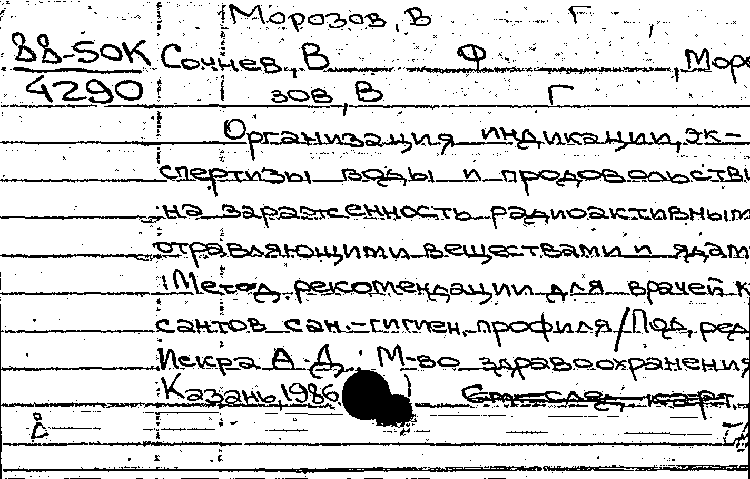 Морозов, В Г
88-50К Сочнев, В Ф , Моро
4290 зов, В Г
Организация индикации, эк-
спертизы воды и продовольстви
на зараженность радиоактивным
отравляющими веществами и ядам
: Метод. рекомендации для врачей к
сантов сан.-гигиен. профиля / Под. ред.
Искра А.Д. ; М-во здравоохранения
Казань, 1986